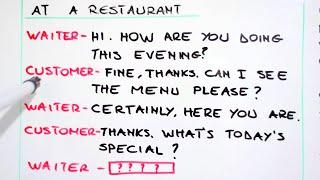 AT A RESTAURANT
WAITER- HI. HOW ARE YOU DOING
THIS EVENING?
CUSTOMER- FINE, THANKS. CAN I SEE
THE MENU PLEASE?
WAITER- CERTAINLY, HERE YOU ARE.
CUSTOMER- THANKS. WHAT'S TODAY'S
SPECIAL?
WAITER- ????